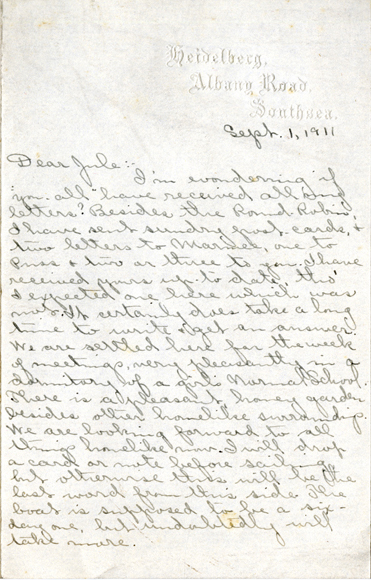 Heidelberg,
Albany Road,
Southsea.
Sept. 1, 1911
Dear Jule:-
I'm wondering if
you all have received all our
letters? Besides the Round Robin
I have sent sundry post cards, &
two letters to Mardee, one to
Puss & two or three to you. I have
received yours up to date, tho'
I expected one here which was
not. It certainly does take a long
time to write & get an answer.
We are settled here for the week
of meetings, very pleasantly in a
dormitory of a girls Normal School.
There is a pleasant, homey garden
besides other homelike surroundings.
We are looking forward to all
things homelike now. I will drop
a card or note before sailing
but otherwise this will be the
last word from this side. The
boat is supposed to be a six-
day one, but undoubtedly will
take more.